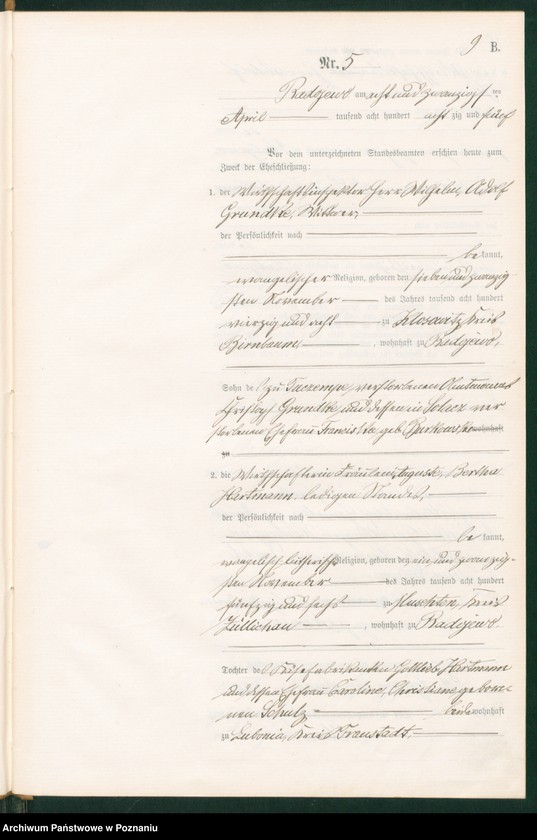 9 B.
Nr. 5
Radojewo am acht und zwanzigsten
April tausend acht hundert acht zig und fünf
Vor dem unterzeichneten Standesbeamten erschien heute zum
Zweck der Eheschließung:
1. der Wirthschaftsinspektor Herr Wilhelm, Adolf
Grundke, Wittwer,
der Persönlichkeit nach
be kannt,
evangelischer Religion, geboren den sieben und zwanzig
sten November des Jahres tausend acht hundert
vierzig und acht zu Klosowitz Kreis
Birnbaum, wohnhaft zu Radojewo,
Sohn des zu verstorbenen Amtmanns
Christoph Grundke, und dessen in ver
storbenen Ehefrau geb. wohnhaft
zu
2. die Wirthschafterin Fräulein, Auguste, Bertha
Hartmann, ledigen Standes,
der Persönlichkeit nach
be kannt,
evangelisch lutherischer Religion, geboren den ein und zwanzig-
sten November des Jahres tausend acht hundert
fünfzig und sechs zu Muschten, Kreis
Züllichau, wohnhaft zu Radojewo
Tochter des Gottlieb Hartmann
und dessen Ehefrau Karoline, Christiane gebore-
nen Schulz beide wohnhaft
zu Lubonia, Kreis Fraustadt.
Archiwum Państwowe w Poznaniu